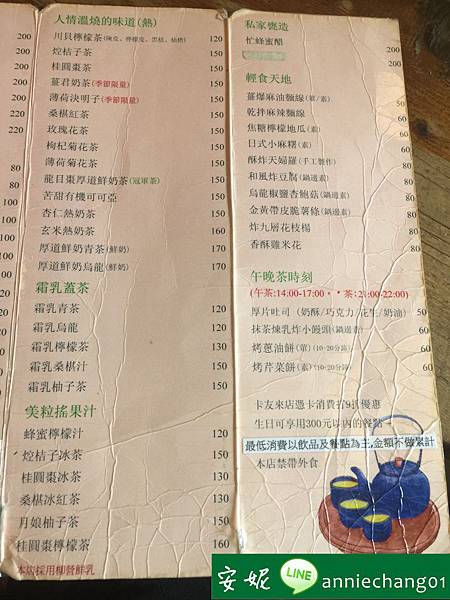 200
200
200
220
220
80
100
100
100
90
80
人情溫燒的味道(熱)
川貝檸檬茶 120
焢桔子茶 150
桂圓棗茶 150
薑君奶茶(季節限量) 150
薄荷決明子(季節限量) 150
桑椹紅茶 150
玫瑰花茶 150
枸杞菊花茶 150
薄荷菊花茶 150
龍目棗厚道鮮奶茶(冠軍茶) 150
苦甜有機可可亞 150
杏仁熱奶茶 150
玄米熱奶茶 160
厚道鮮奶青茶(鮮奶) 170
厚道鮮奶烏龍(鮮奶) 170
霜乳蓋茶
霜乳青茶 120
霜乳烏龍 120
霜乳檸檬茶 130
霜乳桑椹汁 150
霜乳柚子茶 150
美粒搖果汁
蜂蜜檸檬汁 120
焢桔子冰茶 150
桂圓棗冰茶 130
桑椹冰紅茶 130
月娘柚子茶 150
桂圓棗檸檬茶 160
本店採用柳營鮮乳
私家甕造
忙蜂蜜醋 200
200
輕食天地
薑爆麻油麵線(葷/素)
乾拌麻辣麵線
焦糖檸檬地瓜(素)
日式小麻糬(素)
酥炸天婦羅(手工製作)
和風炸豆腐(鍋邊素)
烏龍椒鹽杏鮑菇(鍋邊素)
金黃帶皮脆薯條(鍋邊素)
炸九層花枝楊
香酥雞米花
午晚茶時刻
(午茶:14:00-17:00‧‧茶:21:00-22:00)
厚片吐司(奶酥/巧克力/花生/奶油) 50
抹茶煉乳炸小饅頭(鍋邊素) 60
烤蔥油餅(葷)(10-20分鐘) 60
烤芹菜餅(素)(10-20分鐘) 60
卡友來店憑卡消費打9折優惠
生日可享用300元以內的餐點
最低消費以飲品及餐點為主,金額不做累計
本店禁帶外食
安妮 LINE anniechang01